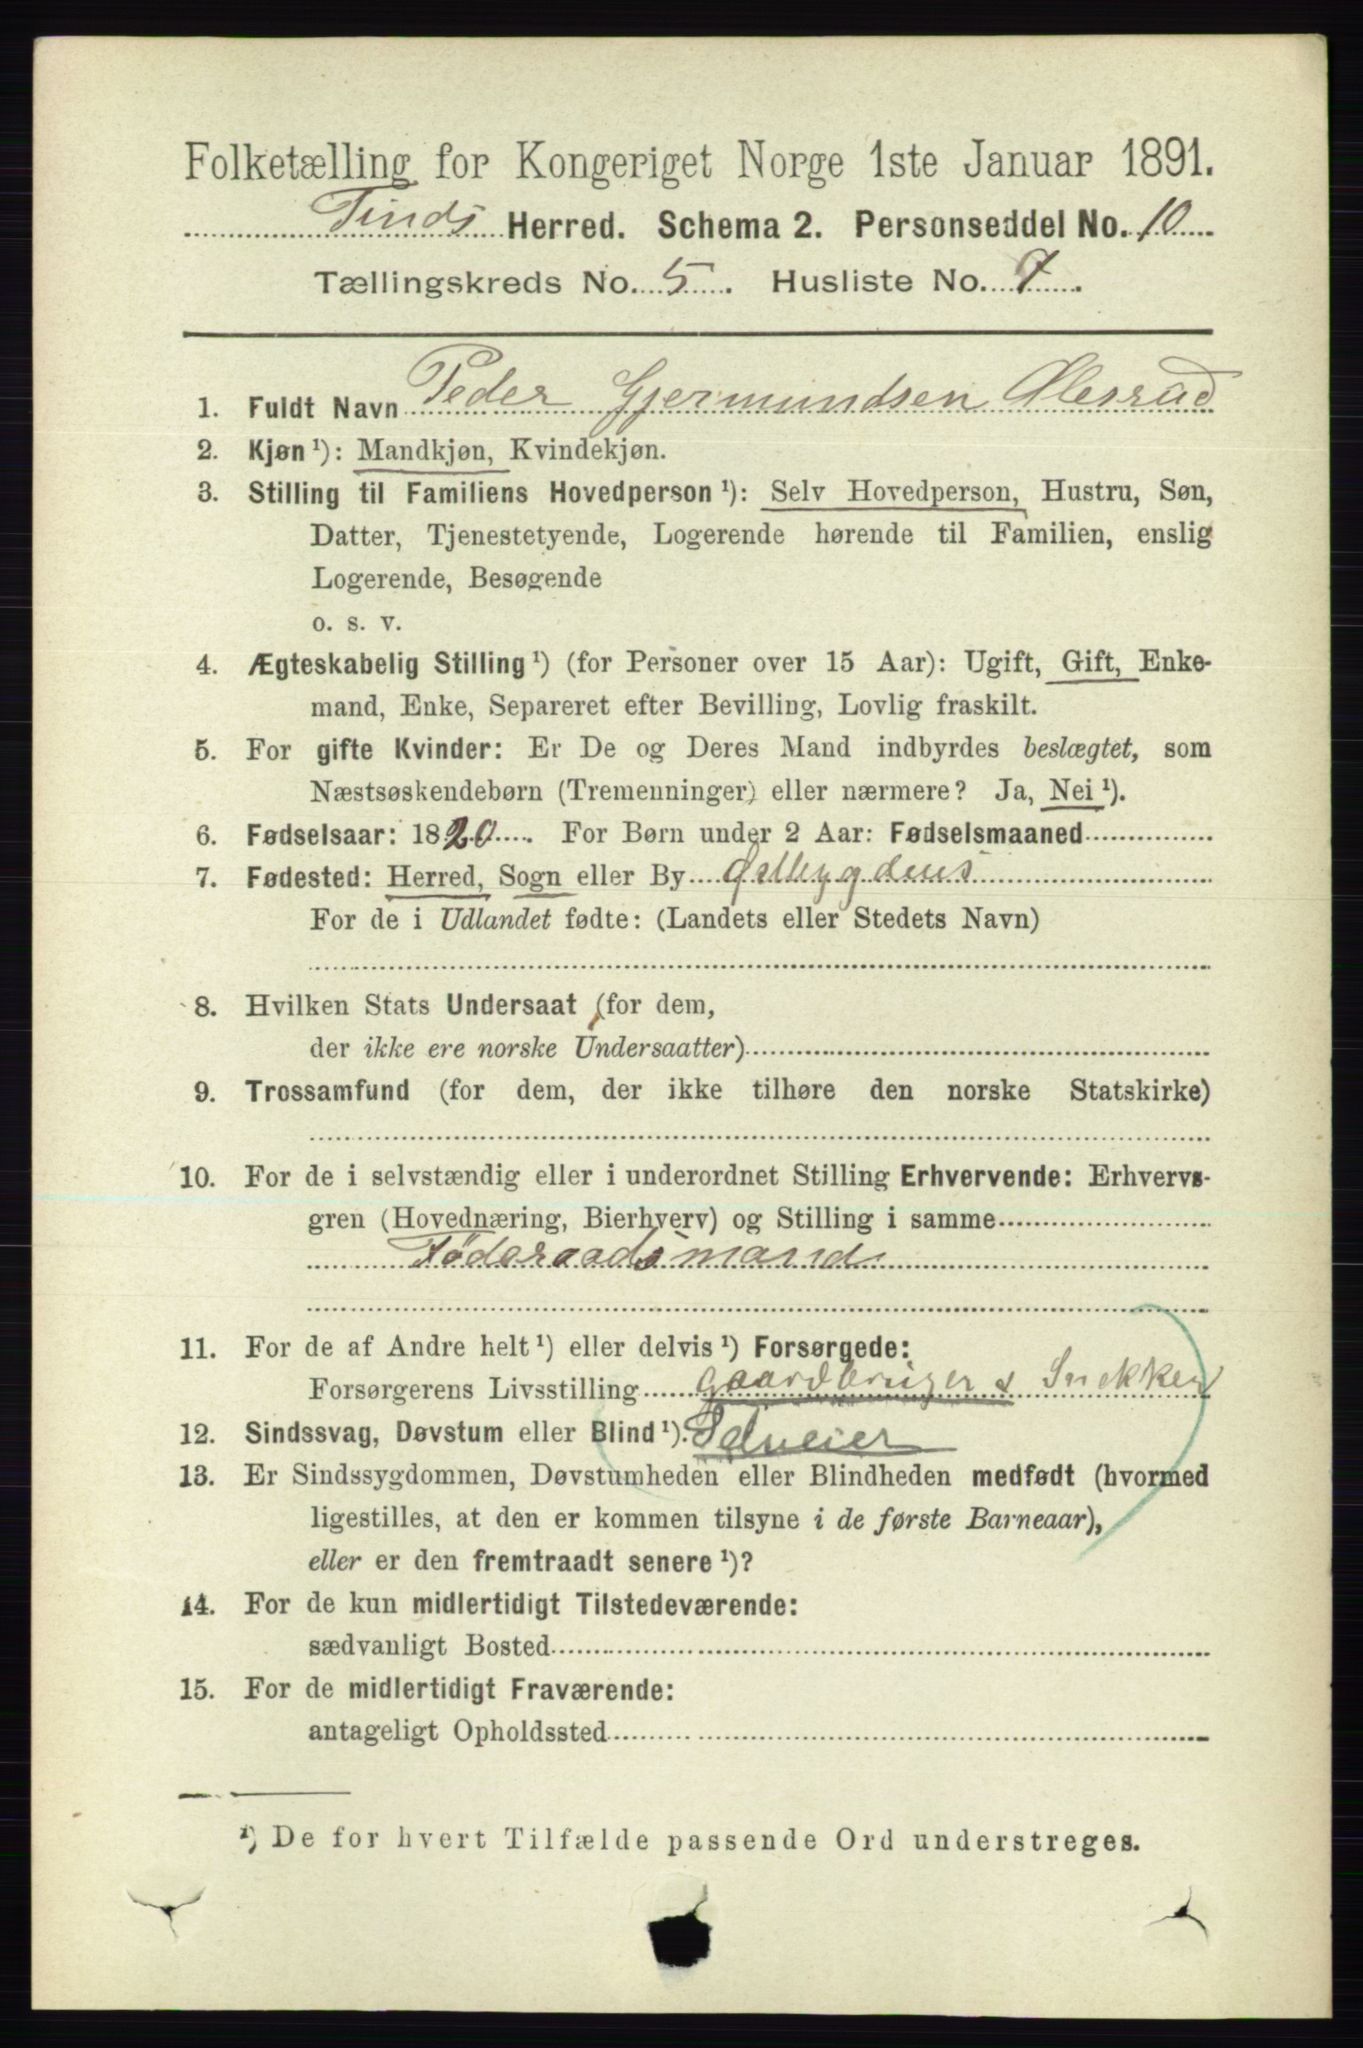 Folketælling for Kongeriget Norge 1ste Januar 1891.
Tinds Herred. Schema 2. Personseddel No. 10
Tællingskreds No. 5. Husliste No. 7.
1. Fuldt Navn Peder Gjermundsen
2. Kjøn ¹): Mandkjøn, Kvindekjøn.
3. Stilling til Familiens Hovedperson ¹): Selv Hovedperson, Hustru, Søn,
Datter, Tjenestetyende, Logerende hørende til Familien, enslig
Logerende, Besøgende
o. s. v.
4. Ægteskabelig Stilling ¹) (for Personer over 15 Aar): Ugift, Gift, Enke-
mand, Enke, Separeret efter Bevilling, Lovlig fraskilt.
5. For gifte Kvinder: Er De og Deres Mand indbyrdes beslægtet, som
Næstsøskendebørn (Tremenninger) eller nærmere? Ja, Nei ¹).
6. Fødselsaar: 1820. For Børn under 2 Aar: Fødselsmaaned
7. Fødested: Herred, Sogn eller By Østbygdens
For de i Udlandet fødte: (Landets eller Stedets Navn)
8. Hvilken Stats Undersaat (for dem,
der ikke ere norske Undersaatter)
9. Trossamfund (for dem, der ikke tilhøre den norske Statskirke)
10. For de i selvstændig eller i underordnet Stilling Erhvervende: Erhvervs-
gren (Hovednæring, Bierhverv) og Stilling i samme
Föderaadsmand
11. For de af Andre helt ¹) eller delvis ¹) Forsørgede:
Forsørgerens Livsstilling Gaardbruger & Snekker
12. Sindssvag, Døvstum eller Blind ¹). Selveier
13. Er Sindssygdommen, Døvstumheden eller Blindheden medfødt (hvormed
ligestilles, at den er kommen tilsyne i de første Barneaar),
eller er den fremtraadt senere ¹)?
14. For de kun midlertidigt Tilstedeværende:
sædvanligt Bosted
15. For de midlertidigt Fraværende:
antageligt Opholdssted
¹) De for hvert Tilfælde passende Ord understreges.